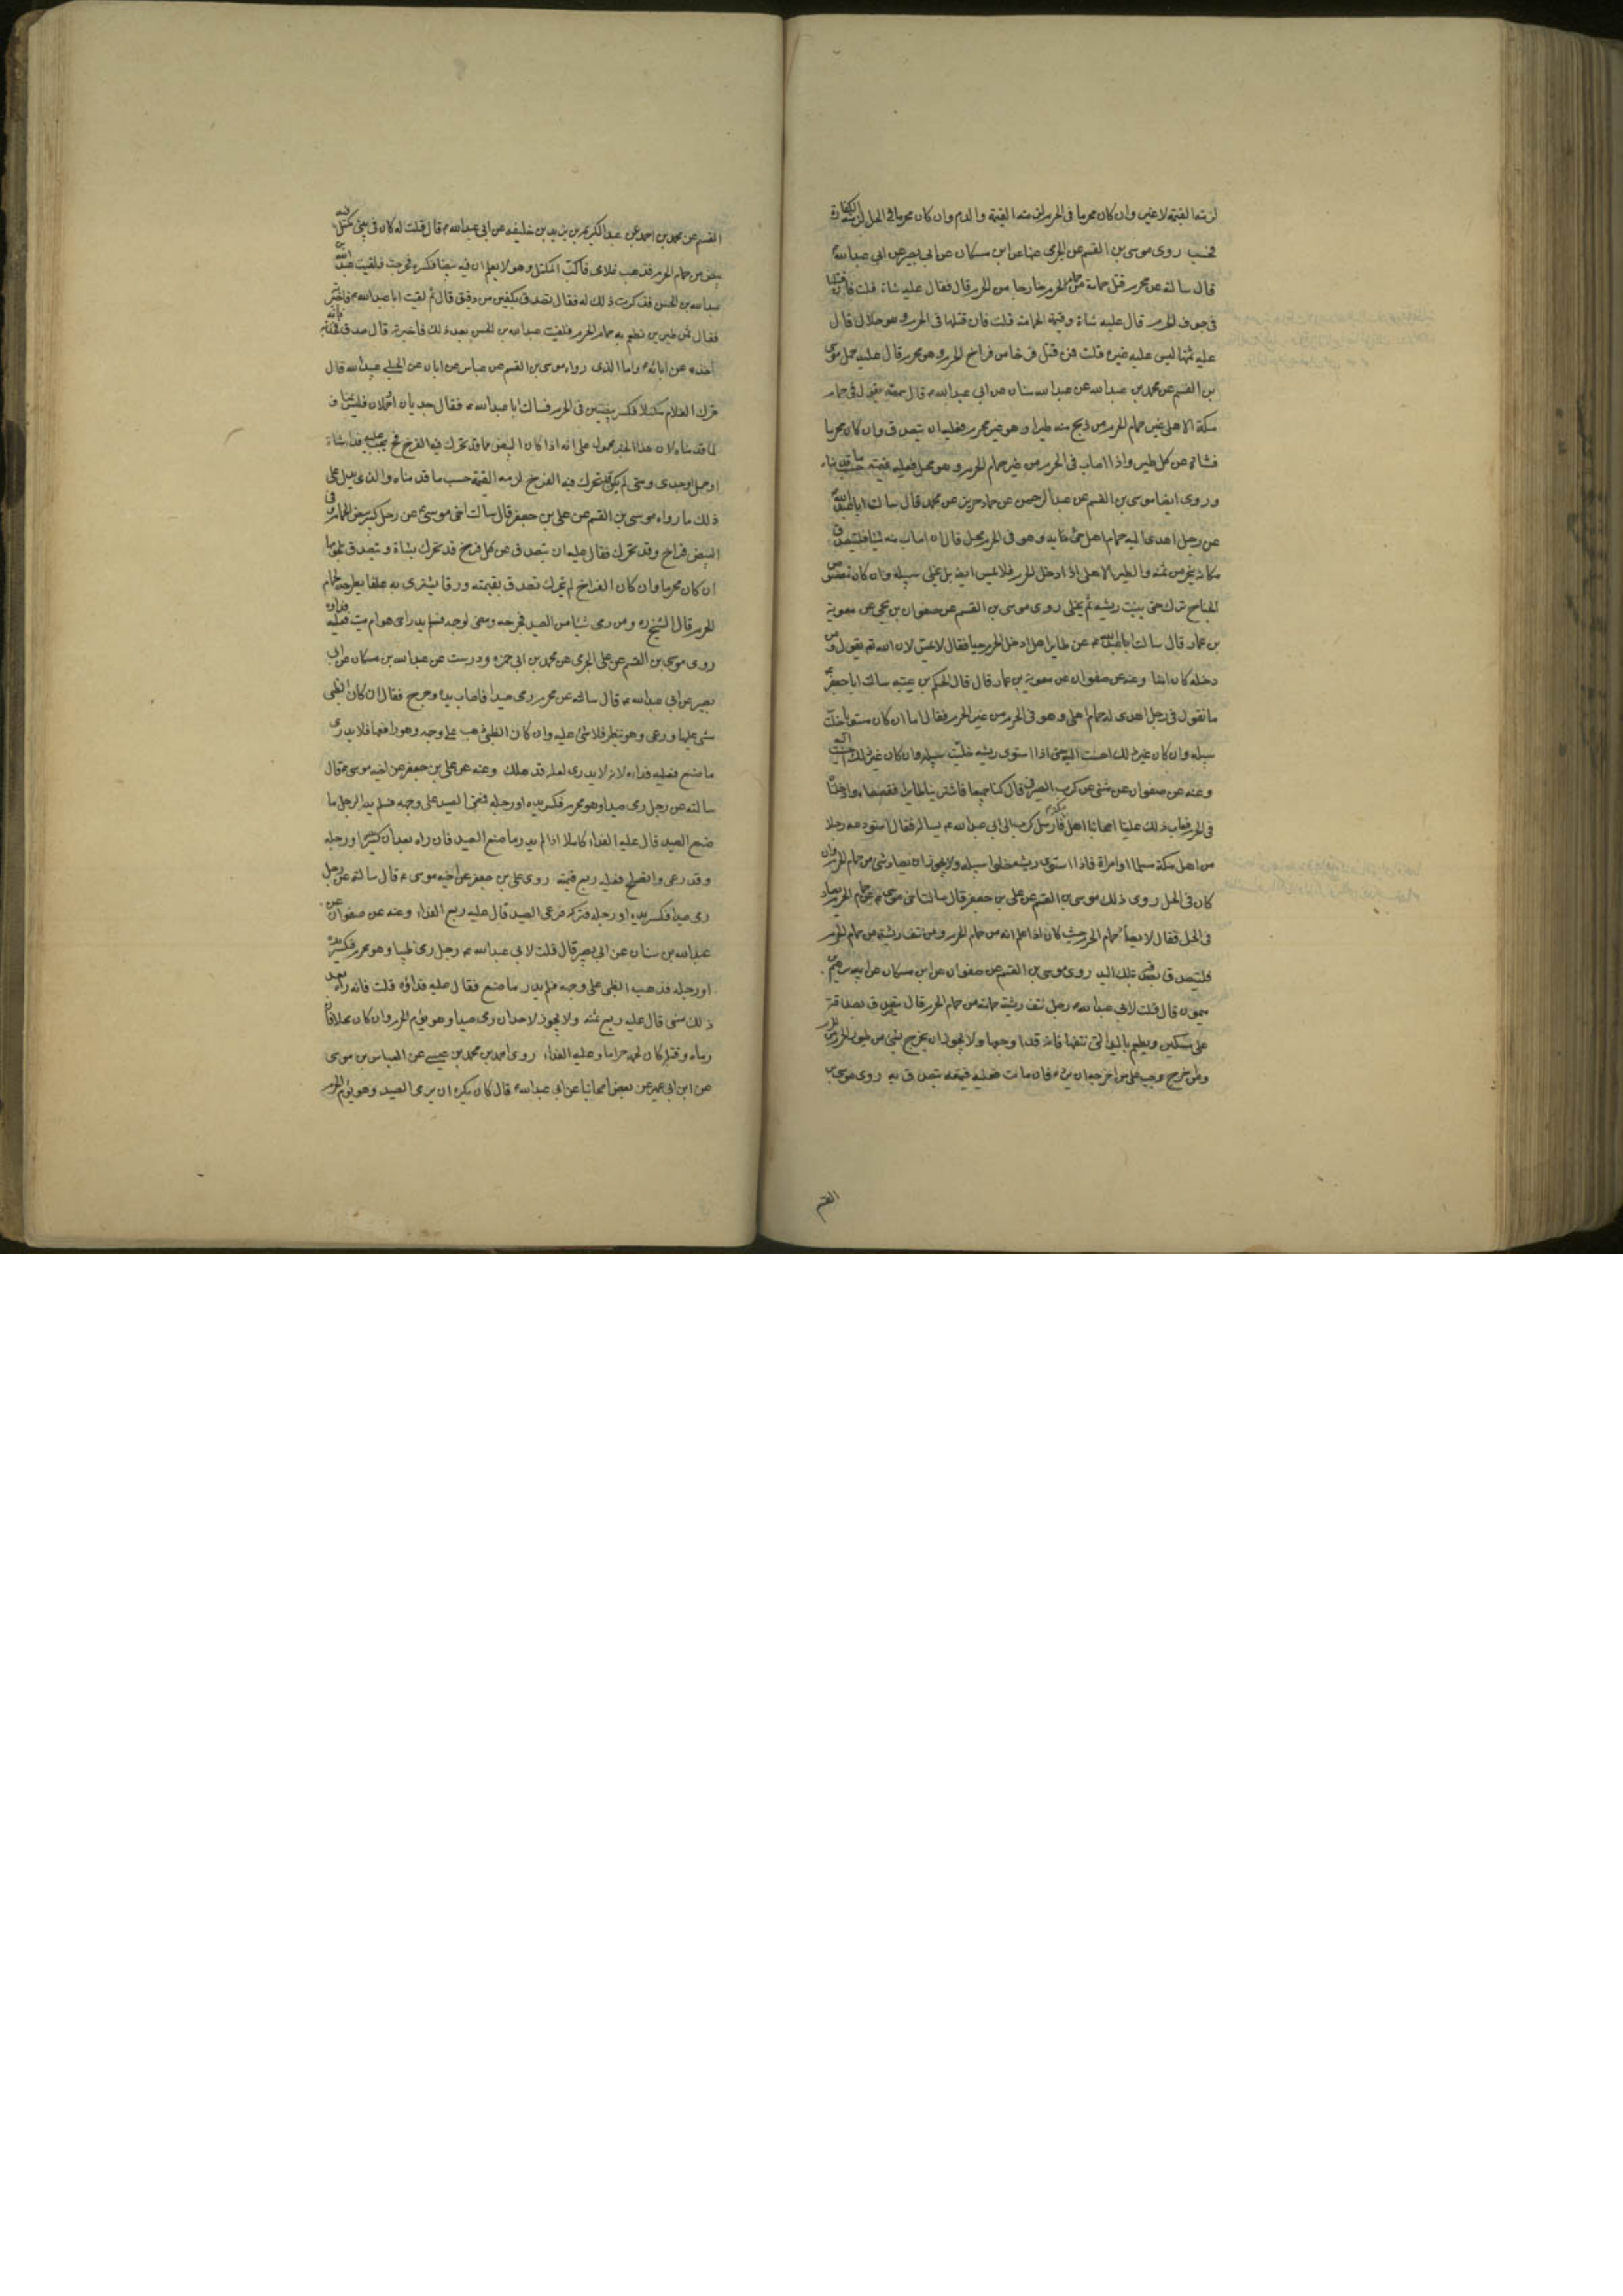 لزمته القيمة لا غير وان كان محرما في الحرم لزمته القيمة والدم وان كان محرما في الحل لزمته الكفارة
فحسب روى موسى بن القسم عن الجرمي عنهما عن ابن مسكان عن ابي بصير عن ابي عبدالله ع
قال سالته عن محرم قتل حمامة من حمام الحرم خارجا من الحرم قال فقال عليه شاة قلت فان قتلها
في جوف الحرم قال عليه شاة وقيمة الحمامة قلت فان قتلها في الحرم وهو حلال قال
عليه ثمنها ليس عليه غيره قلت فمن قتل فرخا من فراخ الحرم وهو محرم قال عليه حمل موسى
بن القسم عن محمد بن عبدالله عن عبدالله سنان عن ابي عبدالله ع قال سمعته يقول في حمام
مكة الاهلي غير حمام الحرم من ذبح منه طيرا وهو غير محرم فعليه ان يتصدق وان كان محرما
فشاة عن كل طير واذا اصاب في الحرم من غير حمام الحرم وهو محل فعليه قيمته حسب ما قدمناه
وروى ايضا موسى بن القسم عن عبد الرحمن عن حماد حريز عن محمد قال سالت ابا عبدالله
عن رجل اهدى اليه حمام اهلي جئ به وهو في الحرم محل قال ان اصاب منه شيئا فليتصدق
مكانه بنحو من ثمنه والطير الاهلي اذا ادخل الحرم فلا يمس ايضا بل يخلى سبيله وان كان مقصوص
الجناح ترك حتى ينبت ريشه ثم يخلى روى موسى بن القسم عن صفوان بن يحيى عن معوية
بن عمار قال سالت ابا عبدالله ع عن طاير اهلي ادخل الحرم حيا فقال لا يمس لان الله تع يقول ومن
دخله كان امنا وعنه عن صفوان عن معوية بن عمار قال قال الحكم بن عيينة سالت ابا جعفر ع
ما تقول في رجل اهدى له حمام اهلي وهو في الحرم من غير الحرم فقال اما ان كان مستويا خليت
سبيله وان كان غير ذلك احسنت اليه حتى اذا استوى ريشه خليت سبيله وان كان غير ذلك احسنت اليه
وعنه عن صفوان عن مثنى عن كرب الصيرفي قال كنا جميعا فاشترينا طايرا فقصصناه وادخلناه
في الحرم فعاب ذلك علينا اصحابنا اهل مكة فارسل كرب الى ابي عبدالله ع يساله فقال استودعه رجلا
من اهل مكة مسلما او امراة فاذا استوى ريشه خلوا سبيله ولا يجوز ان يصاد شئ من حمام الحرم وان
كان في الحل روى ذلك موسى بن القسم عن علي بن جعفر قال سالت اخي موسى ع عن حمام الحرم يصاد
في الحل فقال لا يصاد حمام الحرم حيث كان اذا علم انه من حمام الحرم ومن نتف ريشة من حمام الحرم
فليتصدق بصدقة بتلك اليد روى موسى بن القسم عن صفوان عن ابن مسكان عن ابراهيم بن
ميمون قال قلت لابي عبدالله ع رجل نتف ريشة حمامة من حمام الحرم قال يتصدق بصدقة
على مسكين ويطعم باليد التي نتفها فانه قد اوجعها ولا يجوز ان يخرج شئ من طيور الحرم من الحرم
ومن خرج وجب على من اخرجه ان يرده فان مات فعليه قيمته يتصدق به روى موسى بن
القسم
القسم عن محمد بن احمد عن عبد الكريم بن يزيد بن خليفه عن ابي عبدالله ع قال قلت له كان في بيتي مكتل فيه
بيض من حمام الحرم فذهب غلامي فاكب المكتل وهو لا يعلم ان فيه بيضا فكسره فخرجت فلقيت عبدالله بن
عبدالله بن الحسن فذكرت ذلك له فقال تصدق بكفين من دقيق قال ثم لقيت ابا عبدالله ع فاخبرته
فقال ثمن طيرين تطعم به حمام الحرم فلقيت عبدالله بن الحسن بعد ذلك فاخبرته قال صدق فخذ به فانه
اخذه عن ابائه ع واما الذي رواه موسى بن القسم عن عباس عن ابان عن الحلبي عبيد الله قال
حرك الغلام مكتلا فكسر بيضتين في الحرم فسالت ابا عبدالله ع فقال جديان او حملان فليس بمناف
لما قدمناه لان هذا الخبر محمول على انه اذا كان البيض مما قد تحرك فيه الفرخ فح يجب عليه فداء شاة
او حمل او جدي ومتى لم يكن قد تحرك فيه الفرخ لزمه القيمة حسب ما قدمناه والذي يدل على
ذلك ما رواه موسى بن القسم عن علي بن جعفر قال سالت اخي موسى ع عن رجل كسر بيض الحمام وفي
البيض فراخ وقد تحرك فقال عليه ان يتصدق عن كل فرخ قد تحرك بشاة ويتصدق بلحومها
ان كان محرما وان كان الفراخ لم يتحرك تصدق بقيمته ورقا يشترى به علفا يطرحه لحمام
الحرم قال الشيخ ره ومن رمى شيئا من الصيد فجرحه ومضى لوجهه فلم يدر احي هو ام ميت فعليه فداؤه
روى موسى بن القسم عن علي الجرمي عن محمد بن ابي حمزه ودرست عن عبدالله بن مسكان عن ابي
بصير عن ابي عبدالله ع قال سالته عن محرم رمى صيدا فاصاب يده وجرح فقال ان كان الظبي
مشى عليها ورعى وهو ينظر فلا شئ عليه وان كان الظبي ذهب على وجهه وهو رافعها فلا يدرى
ما صنع فعليه فداءه لانه لا يدري لعله قد هلك وعنه عن علي بن جعفر عن اخيه موسى ع قال
سالته عن رجل رمى صيدا وهو محرم فكسر يده او رجله فمضى الصيد على وجهه فلم يدر الرجل ما
صنع الصيد قال عليه الفداء كاملا اذا لم يدر ما صنع الصيد فان راه بعد ان كسر يده او رجله
وقد رعى وانصلح فعليه ربع قيمته روى علي بن جعفر عن اخيه موسى ع قال سالته عن رجل
رمى صيدا فكسر يده او رجله فتركه فرعى الصيد قال عليه ربع الفداء وعنه عن صفوان عن
عبدالله بن سنان عن ابي بصير قال قلت لابي عبدالله ع رجل رمى ظبيا وهو محرم فكسر يده
او رجله فذهب الظبي على وجهه فلم يدر ما صنع فقال عليه فداؤه قلت فانه راه بعد
ذلك مشى قال عليه ربع ثمنه ولا يجوز لاحد ان رمى صيدا وهو يؤم الحرم وان كان محلا فان
رماه وقتله كان لحمه حراما وعليه الفداء روى احمد بن محمد بن عيسى عن العباس بن موسى
عن ابن ابي عمير عن بعض اصحابنا عن ابي عبدالله ع قال كان يكره ان يرمى الصيد وهو يؤم الحرم